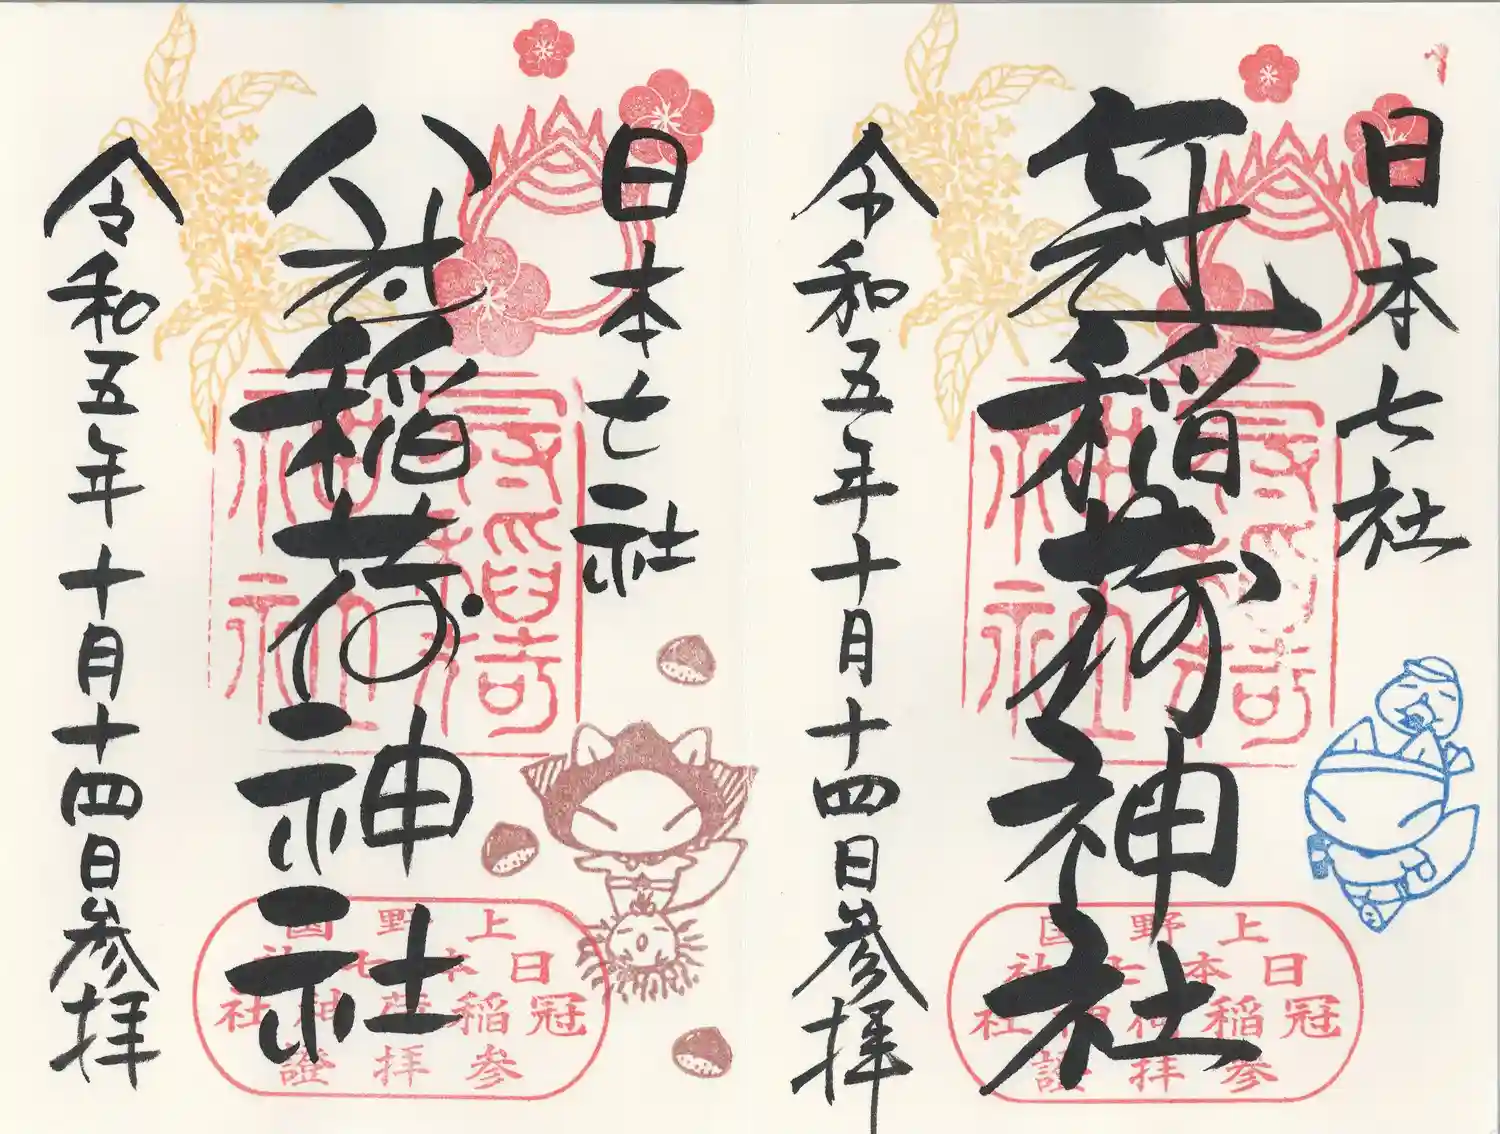 日本七社
冠稲荷神社
令和五年十月十四日参拝
冠稲荷神社
上野国
日本七社
冠稲荷神社
参拝證
日本七社
冠稲荷神社
令和五年十月十四日参拝
冠稲荷神社
上野国
日本七社
冠稲荷神社
参拝證